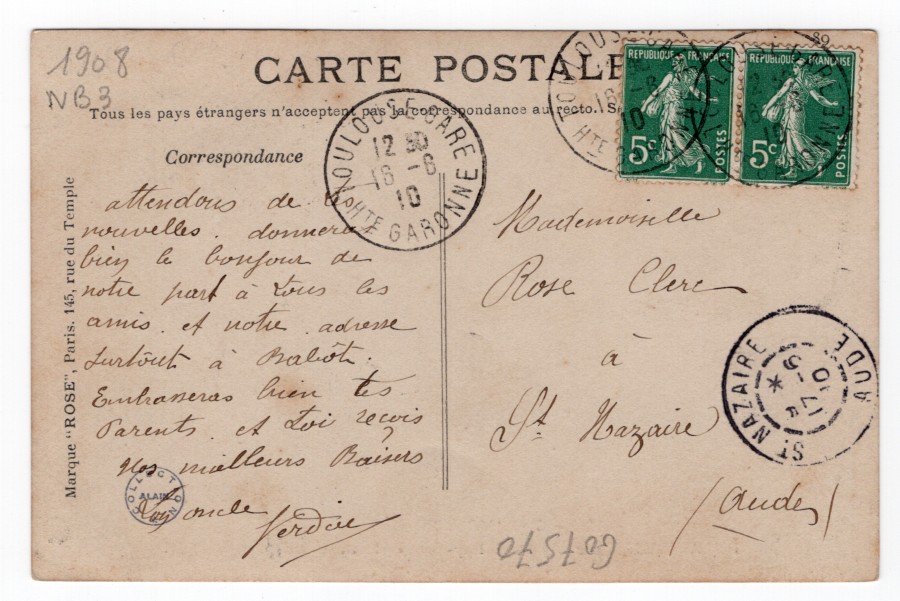 1908
NB3
CARTE POSTALE
Tous les pays étrangers n'acceptent pas la correspondance au recto. S
Correspondance
Marque "ROSE", Paris. 145, rue du Temple
attendons de
nouvelles. donneras
bien le bonjour de
notre part à tous les
amis. et notre adresse
surtout à
Embrasseras bien tes
Parents. et toi reçois
Nos meilleurs Baisers
oncle
Mademoiselle
Rose Clerc
à
St Nazaire
(Aude)
REPUBLIQUE FRANÇAISE
5c POSTES
REPUBLIQUE FRANÇAISE
5c POSTES
TOULOUSE GARE
12
16 -6
10
HTE GARONNE
ST NAZAIRE
AUDE
17 -6
10
COLLECTION
ALAIN
607570